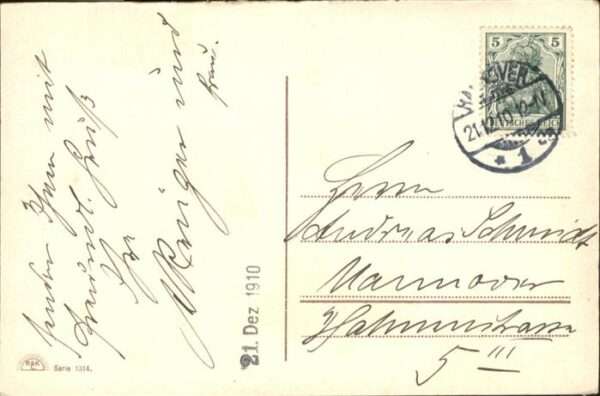 Senden Ihnen mit
freundl. Gruß
Ihr
und
Frau.
21. Dez 1910
Serie 1314.
5 5
HANNOVER
21.12.10.
DEUTSCHES REICH
* 1
Herrn
Andreas Schmidt
Hannover
5 III